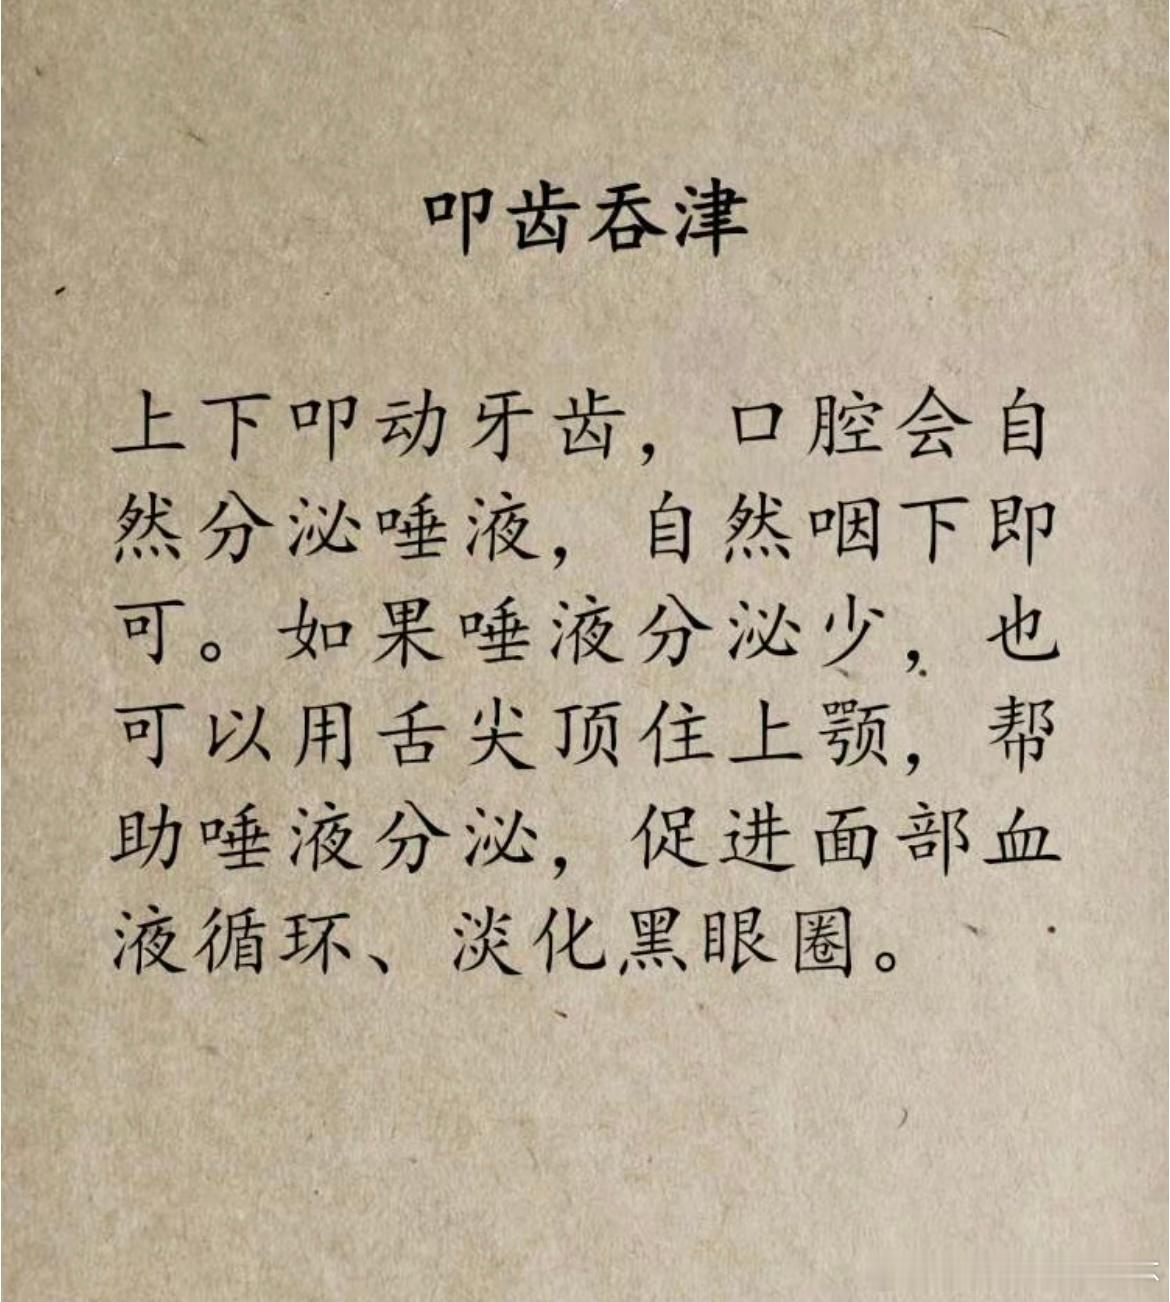 叩齿吞津
上下叩动牙齿，口腔会自
然分泌唾液，自然咽下即
可。如果唾液分泌少，也
可以用舌尖顶住上颚，帮
助唾液分泌，促进面部血
液循环、淡化黑眼圈。